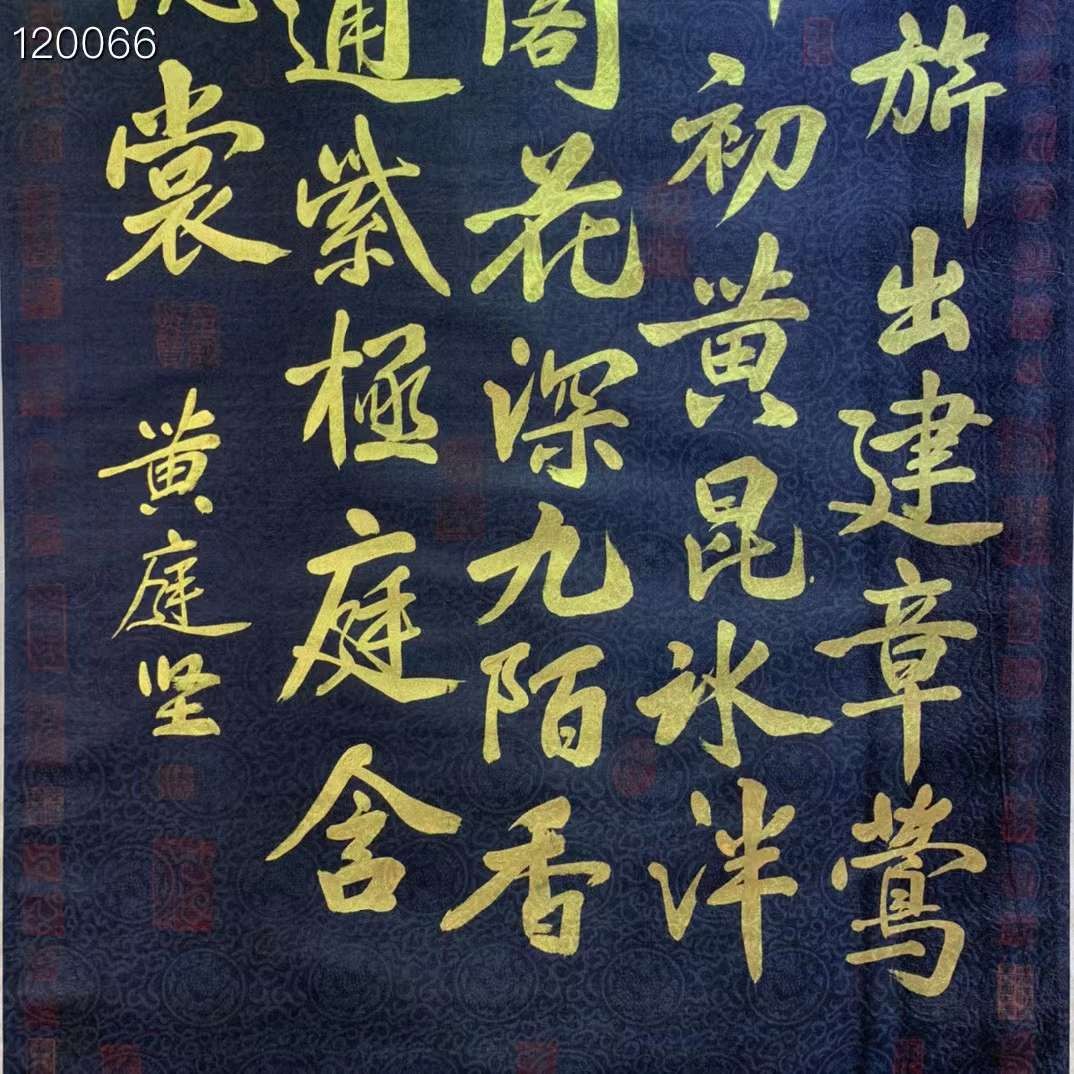 120066
旂出建章鶯
初黄昆冰泮
阁花深九陌香
通紫極庭含
裳
黄庭坚